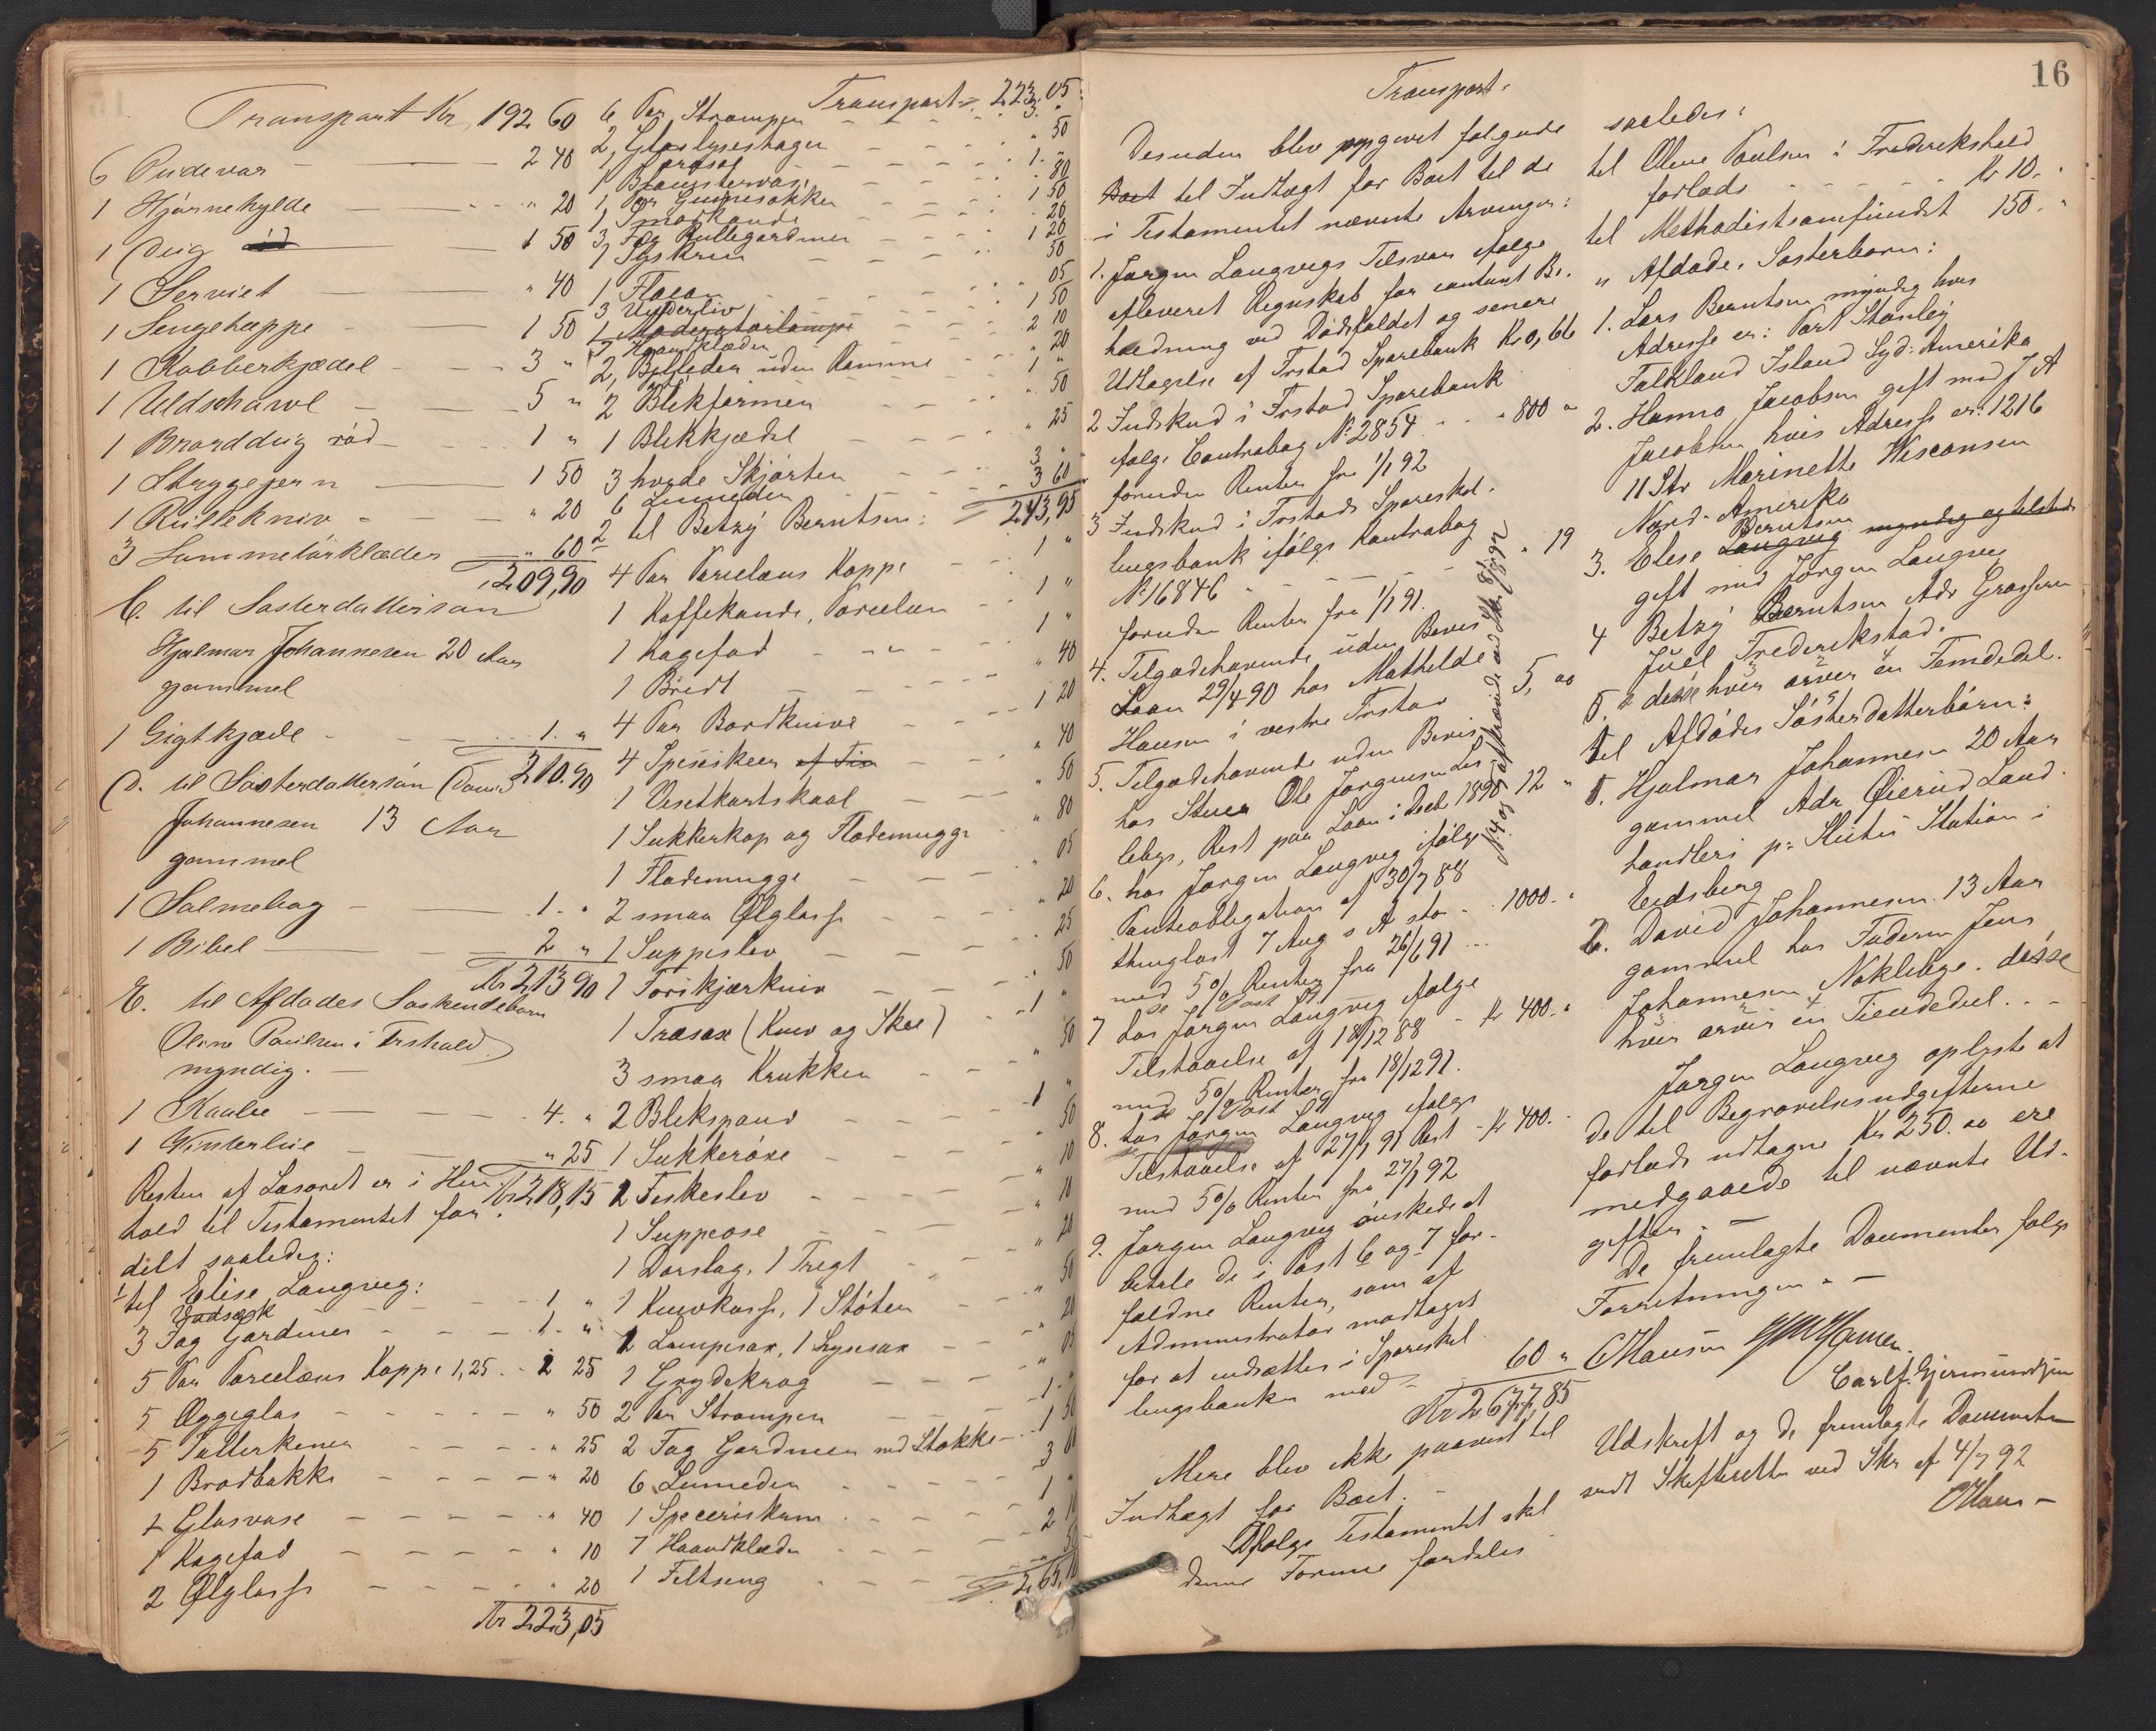 Transport Kr, 192 60
6 Pudevar 2 40
1 Hjørnehylde " 20
1 Dug 1 50
1 Serviet " 40
1 Sengetæppe 1 50
1 Kobberkjædel 3 "
1 Uldschavl 5 "
1 Brorddug rød 1 "
1 Strygejern 1 50
1 Rullekniv " 20
3 Lummetørklæder " 60
209,90
C. til Søsterdattersøn
Hjalmar Johannesen 20 Aar
gammel
1 Gigtkjæde 1. "
210.90
D. til Søsterdattersøn David
Johannesen 13 Aar
gammel
1 Salmebog 1. "
1 Bibel 2 "
Kr 213 90
E. til Afdødes Søskendebarn
Oline Paulsen i Frshald
myndig.
1 Kaabe 4. "
1 Vinterhue " 25
Kr 218,15
Resten af Løsøret er i Hen
hold til Testamentet for
delt saaledes:
til Elise Langveg:
1 Vadsæk 1 "
3 Fag Gardiner 1. "
5 Par Porcelæns Koppe 1,25 - 1 25
5 Æggeglas " 50
5 Tallerkener " 25
1 Brødbakke " 20
2 Glasvase " 40
1 Kagefad " 10
2 Ølglasse " 20
Kr 223,05
Transport 223.05
6 Par Strømper 3. "
2 Glaslysestager " 50
1 Parasol 1. "
1 Blomstervase " 80
1 Par Gummesokker 1 50
1 Smørkande " 20
3 Fag Rullegardiner 1 20
1 Syskrin 50
1 Flacon " 05
3 Underliv 1 50
1 Moderatorlampe
7 Haandklæder 2 10
2 Billeder uden Ramme " 20
2 Blikformer 1 "
1 Blikkjædel " 50
3 hvide Skjørter 3 "
6 Linneder 3 60
243,95
2 til Betzy Berntsen:
4 Par Porcelæns Koppe 1 "
1 Kaffekande, Porcelæn 1 "
1 Kagefad 1 "
1 Bredt " 40
4 Par Bordknive 1 20
4 Speseskeer af Tin " 40
1 Visetkortskaal " 50
1 Sukkerkop og Flødemugge " 80
1 Flødemugge " 05
2 smaa Ølglasse " 20
1 Suppeslev " 25
1 Forskjærkniv " 50
1 Træsax (Kniv og Ske) 1 "
3 smaa Krukker " 50
2 Blikspand 1 "
1 Sukkerøse " 50
1 Feskeslev " 10
1 Suppeøse " 10
1 Dørslag, 1 Tregt " 20
1 Knivkasse, 1 Støter " 50
1 Lampesax, 1 Lysesax " 20
1 Grydekrog " 05
2 Par Strømper 1. "
2 Fag Gardiner med Stokke 1 50
6 Linneder 3 60
1 Speceriskrin 1 "
7 Haandklæder 2 10
1 Feltseng " 50
265,10
16
Transport.
Desuden blev opgivet følgende
Boet til Indtægt for Boet til de
i Testamentet nævnte Arvinger:
1. Jørgen Langvegs Tilsvar ifølge
afleveret Regnskab for contant Be.
holdning ved Dødsfaldet og senere
Udtagelse af Frstad Sparebank Kr 0,66
2 Indskud i Frstad Sparebank
følge Contrabog No 2854 - 800 "
foruden Renter fra 1/1 92
3 Indskud i Frstads Spareskil-
lingsbank ifølge Contrabog
No 16846 " 19
foruden Renter fra 1/1 91.
4. Tilgodehavende uden Bevis
Laan 29/4 90 hos Mathilde
Hansen i vestre Frstad 5, 00
5. Tilgodehavende uden Bevis
hos Stuer Ole Jørgensen Les
lebye, Rest paa Laan i Decb 1890 12 "
6. hos Jørgen Langveg ifølge
Panteobligation af 30/7 88
thinglæst 7 Aug s A stor 1000. "
med 5% Renter fra 26/6 91
se Post 9
7 hos Jørgen Langveg ifølge
Tilstaaelse af 18/12 88 - Kr 400. "
med 5% Renter fra 18/12 91.
se Post 9
8. hos Jørgen Langveg ifølge
Tilstaaelse af 27/1 91 Rest - Kr 400. -
med 5% Renter fra 27/1 92
9. Jørgen Langveg ønskede at
betale de i Post 6 og 7 for-
faldne Renter, som af
Administrator modtaget
for at indsættes i Spareskil
lingsbanken med 60 "
Kr 2677,85
Mere blev ikke paavist til
Indtægt for Boet. -
Ifølge Testamentet skal
denne Formue fordeles
saaledes:
til Oline Poulsen i Frederikshald
forlods Kr 10. -
til Methodistsamfundet 150. "
" Afdødes Søsterbørn:
1. Lars Berntsen myndig hvis
Adresse er: Port Stanley
Falkland Island Syd: Amerika
2. Hanna Jacobsen gift med J A
Jacobsen hvis Adresse er: 1216
11 Str Marinette Wisconsin
Nord-Amerika
Berntsen
3. Elise Langveg myndig og tilstede
gift med Jørgen Langveg
4 Betzy Berntsen Adr Grosserer
Juel Frederikstad.
disse hver arver en Femdedel.
til Afdødes Søsterdatterbørn:
1. Hjalmar Johannesen 20 Aar
gammel Adr Øierud Land-
handleri pr Slitu Station i
Eidsberg
2. David Johannesen 13 Aar
gammel hos Faderen Jens
Johannesen Nøkleberge. disse
hver arver en Tiendedeel. -
Jørgen Langveg oplyste at
de til Begravelsesudgifterne
forlods udtagne Kr 250. 00 ere
medgaaede til nævnte Ud-
gifter. -
De fremlagte Documenter følge
Forretningen. -
OHansen HMHansen.
Carl J. Gjermundsen
Udskrift og de fremlagte Documenter
sendt Skifteretten ved Skr af 4/7 92
OHans -